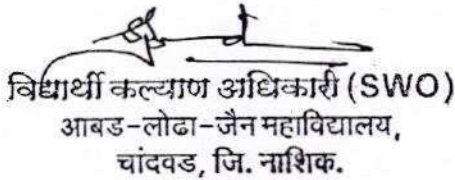 विद्यार्थी कल्याण अधिकारी (SWO)
आबड-लोढा-जैन महाविद्यालय,
चांदवड, जि. नाशिक.